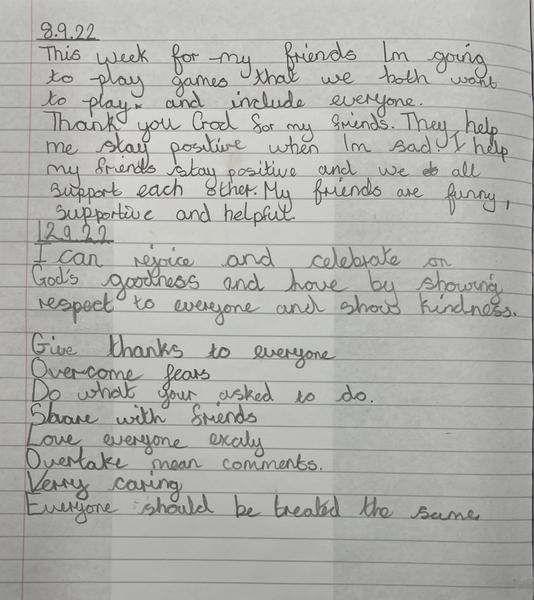 8.9.22
This week for my friends Im going
to play games that we both want
to play. and include everyone.
Thank you God for my friends. They help
me stay positive when Im sad, I help
my friends stay positive and we all
support each other. My friends are funny,
supportive and helpful.
12.9.22
I can rejoice and celebrate on
God's goodness and love by showing
respect to everyone and show kindness.
Give thanks to everyone
Overcome fears
Do what your asked to do.
Share with friends
Love everyone exaly
Overtake mean comments.
Verry caring
Everyone should be treated the same